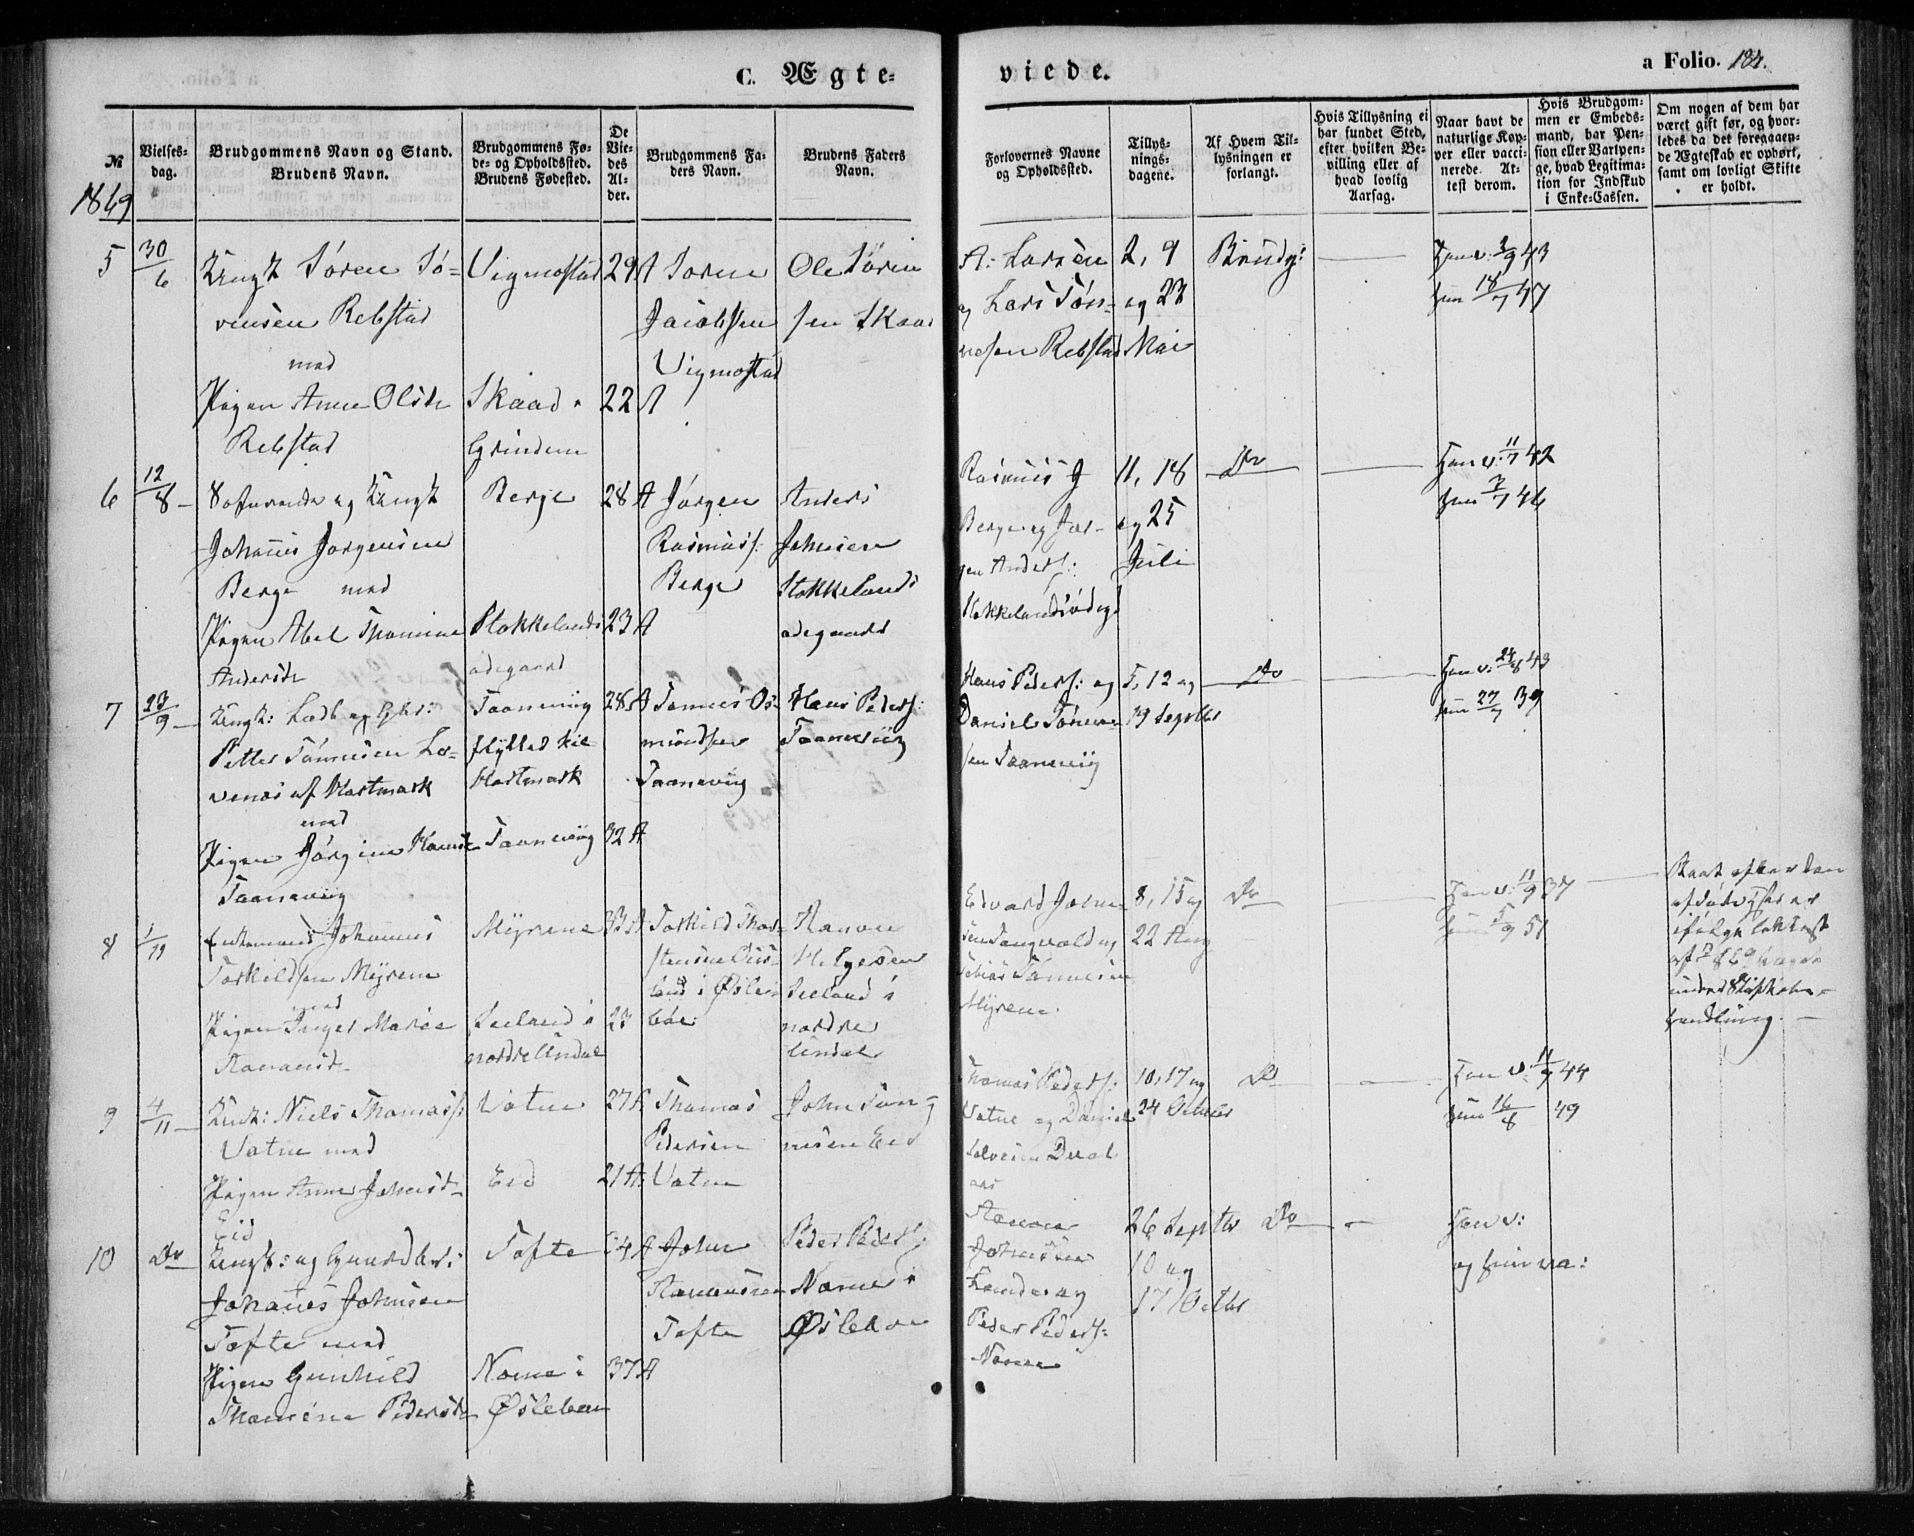 C. Ægte-
viede.
a Folio. 184.
№
Vielses-
dag.
Brudgommens Navn og Stand.
Brudens Navn.
Brudgommens Fø-
de- og Opholdssted.
Brudens Fødested.
De
Vie-
des
Al-
der.
Brudgommens Fa-
ders Navn.
Brudens Faders
Navn.
Forlovernes Navne
og Opholdssted.
Tillys-
nings-
dagene.
Af Hvem Til-
lysningen er
forlangt.
Hvis Tillysning ei
har fundet Sted,
efter hvilken Be-
villing eller af
hvad lovlig
Aarsag.
Naar havt de
naturlige Kop-
per eller vacci-
nerede. At-
test derom.
Hvis Brudgom-
men er Embeds-
mand, har Pen-
sion eller Vartpen-
ge, hvad Legitima-
tion for Indskud
i Enke-Cassen.
Om nogen af dem har
været gift før, og hvor-
ledes da det foregaaen-
de Ægteskab er ophørt,
samt om lovligt Skifte
er holdt.
1869
5
30/6
Ungk Søren Sø-
rensen Rebstad
med
Pigen Anne Olsdr
Rebstad
Vigmostad
Skaad
Grindem
29 A
22 A
Søren
Jacobsen
Vigmostad
Ole Sören
sen Skaad
A. Larsen
og Lars Tön-
nesen Rebstad
2, 9
og 23
Mai
Brudg:
Han v. 3/9 43
hun 18/7 47
6
12/8
og Ungk
Johannes Jørgensen
Berge med
Pigen Abel Thomine
Andersdr
Berge
Stokkelands
ødegaard
28 A
23 A
Jørgen
Rasmuss:
Berge
Anders
Johnsen
Stokkelands
ødegaard
Rasmus J
Berge og Jør-
gen Anders:
Stokkelandsødegd
11, 18
og 25
Juli
Do
Han v. 11/7 42
hun 7/7 46
7
23/9
Ungk:
Petter Tönnesen Lø-
venæs af Hartmark
med
Pigen Jørgine Hansdr
Taanevig
Taanevig
flyttet til
Hartmark
Taanevig
28 A
32 A
Tönnes Os-
mundsen
Taanevig
Hans Peders:
Taanevig
Hans Peders: og
Daniel Tönne-
sen Taanevig
5, 12 og
19 Septbr
Do
Han v: 24/8 43
hun 27/7 39
8
1/11
Enkemand Johannes
Torkildsen Myrene
med
Pigen Inger Marie
Aanensdr
Myrene
Seeland i
nordre Undal
33 A
23
Torkild Thor-
stensen
i Øsle-
bøe
Aanon
Helgesen
Seeland i
nordre
Undal
Edvard John-
sen Tangvald og
Tobias Tönnesen
Myrene.
8, 15 og
22 Aug
Do
Han v. 11/9 37
hun 5/9 51
Skaat efter den
afdøde
ifølge Attest
af
under Skiftebe-
handling.
9
4/11
Ungk: Niels Thomass:
Vatne med
Pigen Anne Johnsdr
Eid
Vatne
Eid
27 A
21 A
Thomas
Pedersen
Vatne
John Tön-
nesen Eid
Thomas Peders:
Vatne og Daniel
Salvesen
10, 17 og
24 Octobr
Do
Han v. 11/9 44
hun 16/8 49
10
Do
Ungk: og Gaardbr:
Johannes Johnsen
Tofte med
Pigen Gunhild
Thomine Pedersdr
Tofte
Nome i
Øslebøe
37 A
John
Aanensen
Tofte
Peder Peders:
Nome i
Øslebøe
Aanon
Johnsen
og
Peder Peders:
Nome
26 Septbr
10 og
17 Octbr
Do
Han v:
og hun va: